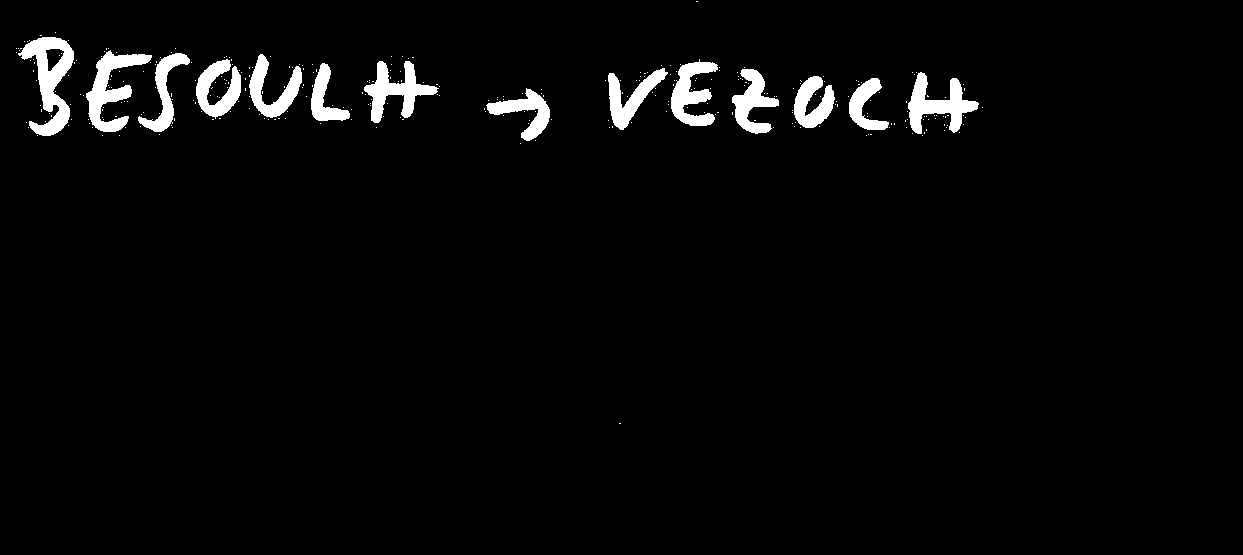 BESOULH → VEZOCH